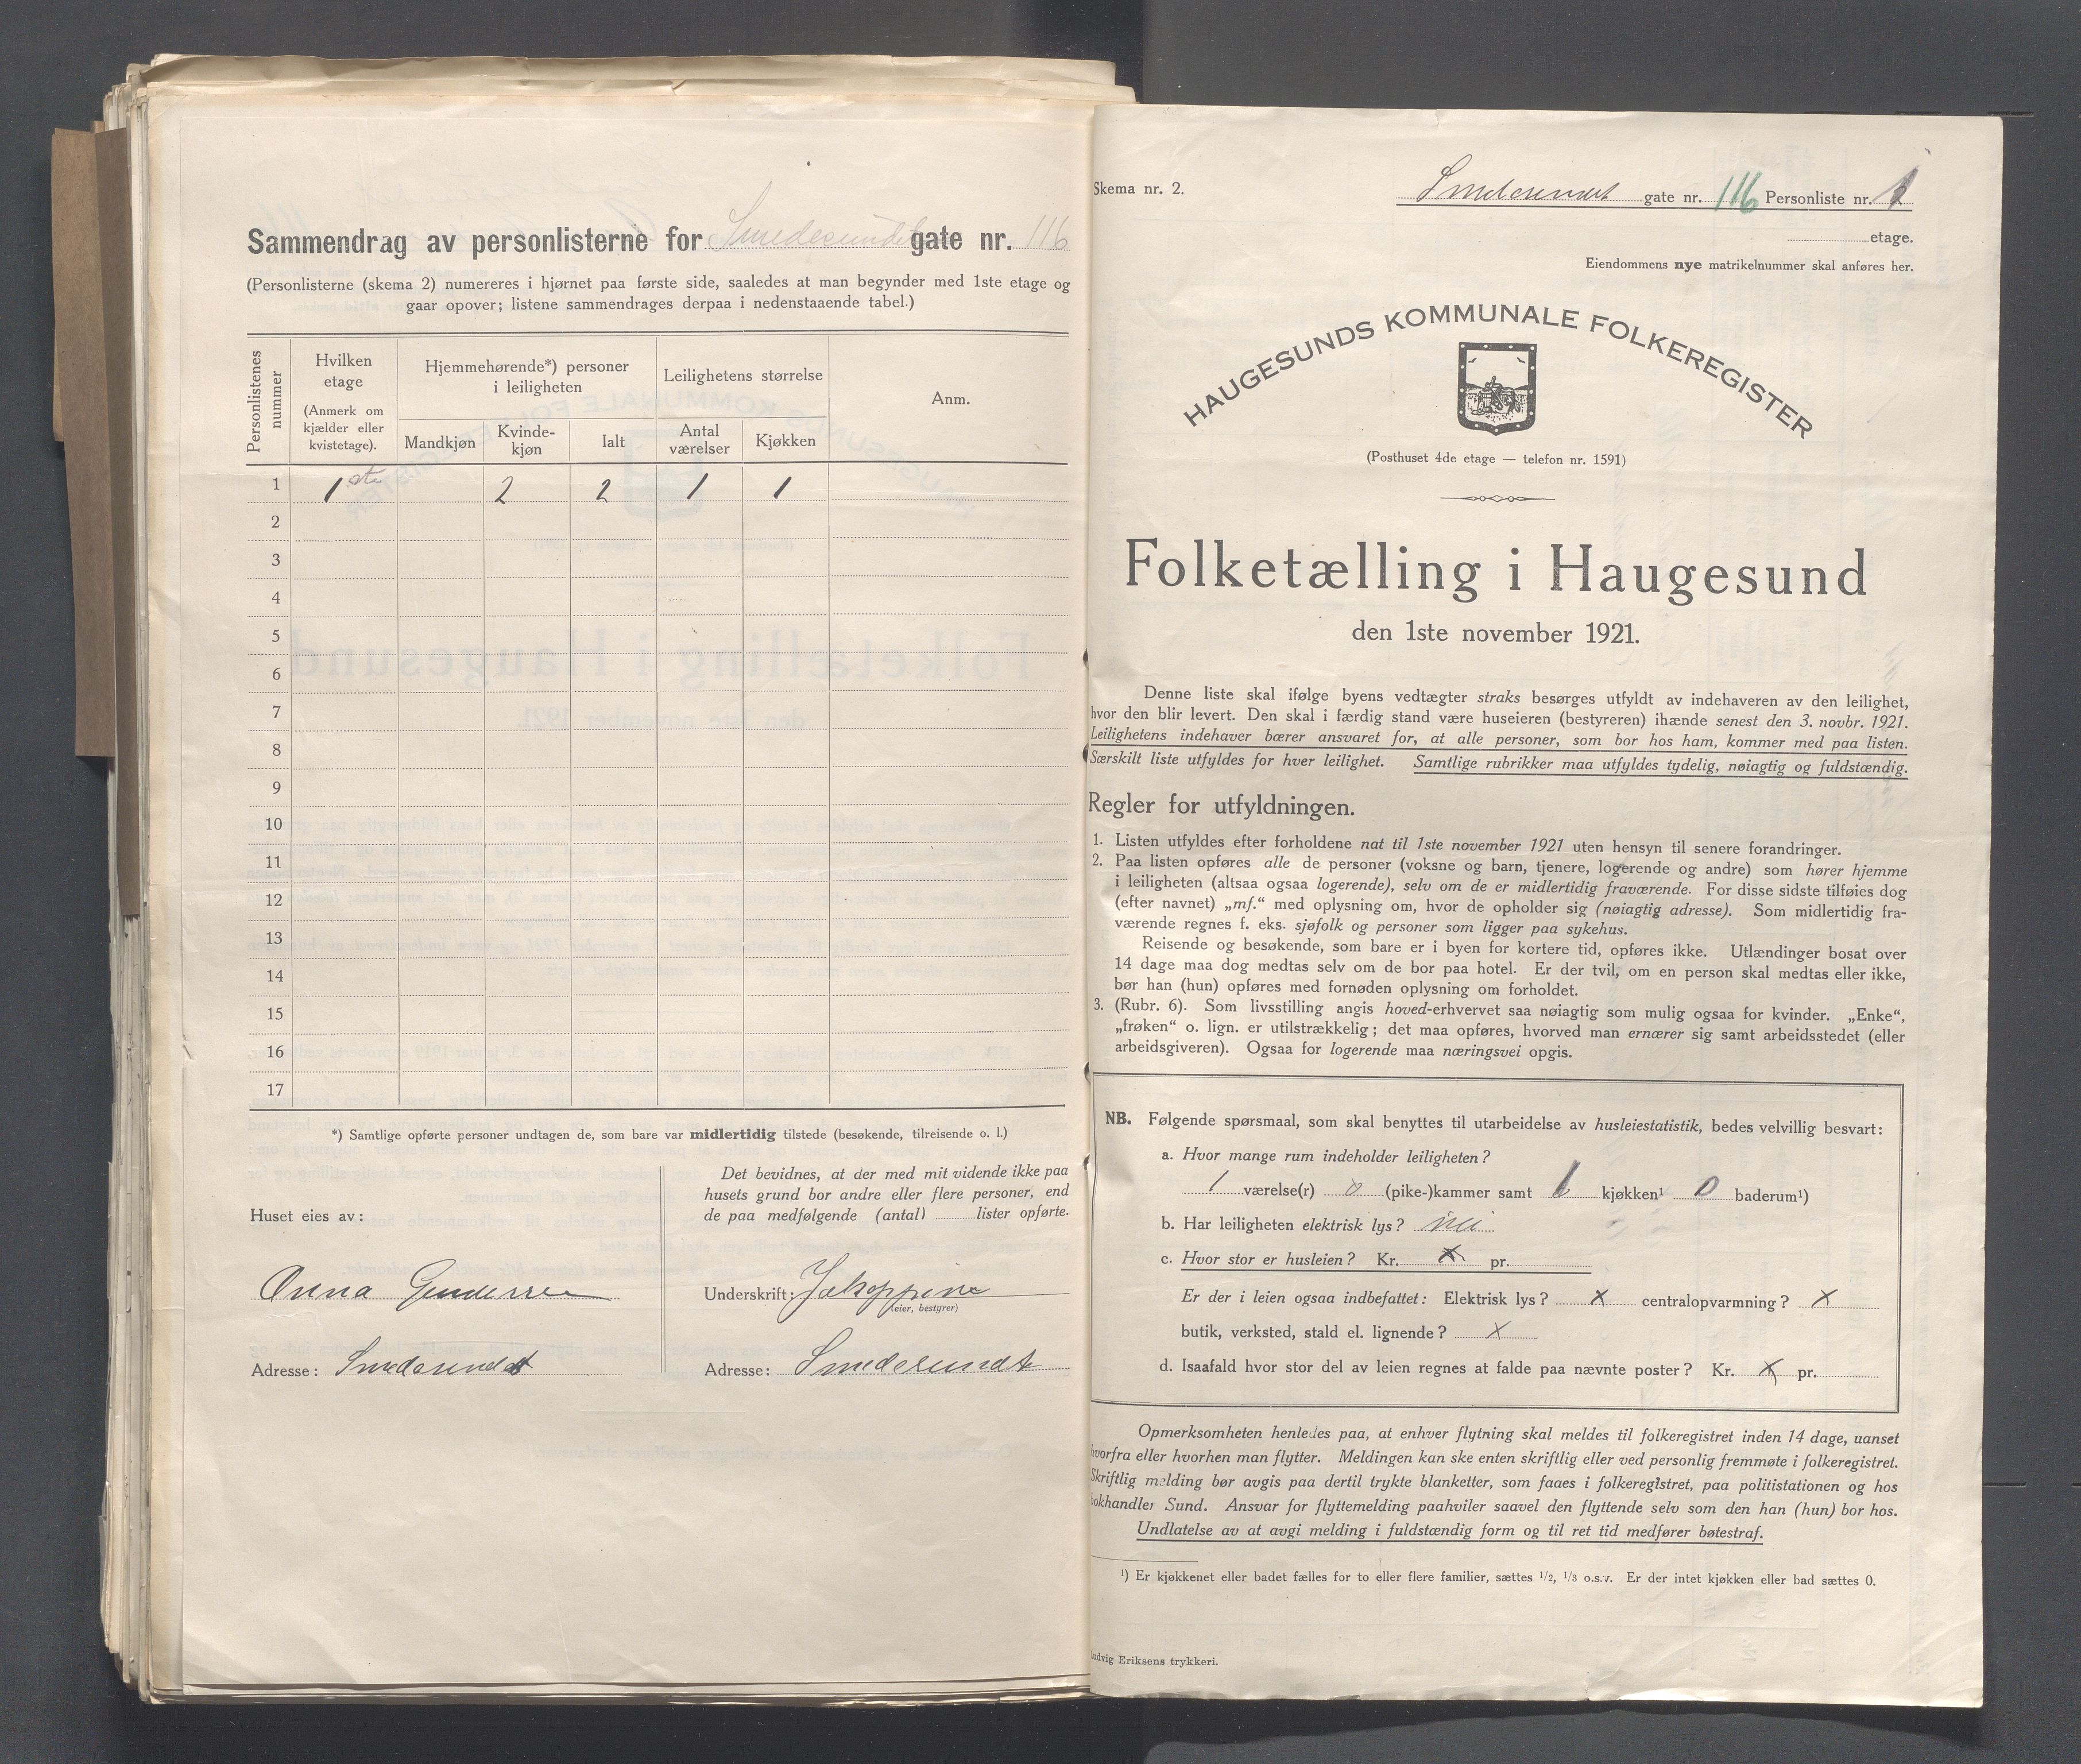 Sammendrag av personlisterne for Smedesundet gate nr. 116
(Personlisterne (skema 2) numereres i hjørnet paa første side, saaledes at man begynder med 1ste etage og
gaar opover; listene sammendrages derpaa i nedenstaaende tabel.)
Personlistenes nummer
Hvilken etage (Anmerk om kjælder eller kvistetage).
Hjemmehørende*) personer i leiligheten
Leilighetens størrelse
Anm.
Mandkjøn Kvinde-kjøn Ialt Antal værelser Kjøkken
1 1ste 2 2 1 1
2
3
4
5
6
7
8
9
10
11
12
13
14
15
16
17
*) Samtlige opførte personer undtagen de, som bare var midlertidig tilstede (besøkende, tilreisende o. l.)
Huset eies av:
Anna Gundersen
Adresse: Smedesundet
Det bevidnes, at der med mit vidende ikke paa
husets grund bor andre eller flere personer, end
de paa medfølgende (antal) lister opførte.
Underskrift: Jakoppine
(eier, bestyrer)
Adresse: Smedesundt
Skema nr. 2.
Smedesundet gate nr. 116 Personliste nr.
etage.
Eiendommens nye matrikelnummer skal anføres her.
HAUGESUNDS KOMMUNALE FOLKEREGISTER
(Posthuset 4de etage — telefon nr. 1591)
Folketælling i Haugesund
den 1ste november 1921.
Denne liste skal ifølge byens vedtægter straks besørges utfyldt av indehaveren av den leilighet,
hvor den blir levert. Den skal i færdig stand være huseieren (bestyreren) ihænde senest den 3. novbr. 1921.
Leilighetens indehaver bærer ansvaret for, at alle personer, som bor hos ham, kommer med paa listen.
Særskilt liste utfyldes for hver leilighet. Samtlige rubrikker maa utfyldes tydelig, nøiagtig og fuldstændig.
Regler for utfyldningen.
1. Listen utfyldes efter forholdene nat til 1ste november 1921 uten hensyn til senere forandringer.
2. Paa listen opføres alle de personer (voksne og barn, tjenere, logerende og andre) som hører hjemme
i leiligheten (altsaa ogsaa logerende), selv om de er midlertidig fraværende. For disse sidste tilføies dog
(efter navnet) „mf.“ med oplysning om, hvor de opholder sig (nøiagtig adresse). Som midlertidig fra-
værende regnes f. eks. sjøfolk og personer som ligger paa sykehus.
Reisende og besøkende, som bare er i byen for kortere tid, opføres ikke. Utlændinger bosat over
14 dage maa dog medtas selv om de bor paa hotel. Er der tvil, om en person skal medtas eller ikke,
bør han (hun) opføres med fornøden oplysning om forholdet.
3. (Rubr. 6). Som livsstilling angis hoved-erhvervet saa nøiagtig som mulig ogsaa for kvinder. „Enke“,
„frøken“ o. lign. er utilstrækkelig; det maa opføres, hvorved man ernærer sig samt arbeidsstedet (eller
arbeidsgiveren). Ogsaa for logerende maa næringsvei opgis.
NB. Følgende spørsmaal, som skal benyttes til utarbeidelse av husleiestatistik, bedes velvillig besvart:
a. Hvor mange rum indeholder leiligheten?
1 værelse(r) 0 (pike-)kammer samt 1 kjøkken¹ 0 baderum¹)
b. Har leiligheten elektrisk lys? nei
c. Hvor stor er husleien? Kr. x pr.
Er der i leien ogsaa indbefattet: Elektrisk lys? x centralopvarmning? x
butik, verksted, stald el. lignende? x
d. Isaafald hvor stor del av leien regnes at falde paa nævnte poster? Kr. x pr.
Opmerksomheten henledes paa, at enhver flytning skal meldes til folkeregistret inden 14 dage, uanset
hvorfra eller hvorhen man flytter. Meldingen kan ske enten skriftlig eller ved personlig fremmøte i folkeregistret.
Skriftlig melding bør avgis paa dertil trykte blanketter, som faaes i folkeregistret, paa politistationen og hos
bokhandler Sund. Ansvar for flyttemelding paahviler saavel den flyttende selv som den han (hun) bor hos.
Undlatelse av at avgi melding i fuldstændig form og til ret tid medfører bøtestraf.
¹) Er kjøkkenet eller badet fælles for to eller flere familier, sættes 1/2, 1/3 o.s.v. Er der intet kjøkken eller bad sættes 0.
Ludvig Eriksens trykkeri.